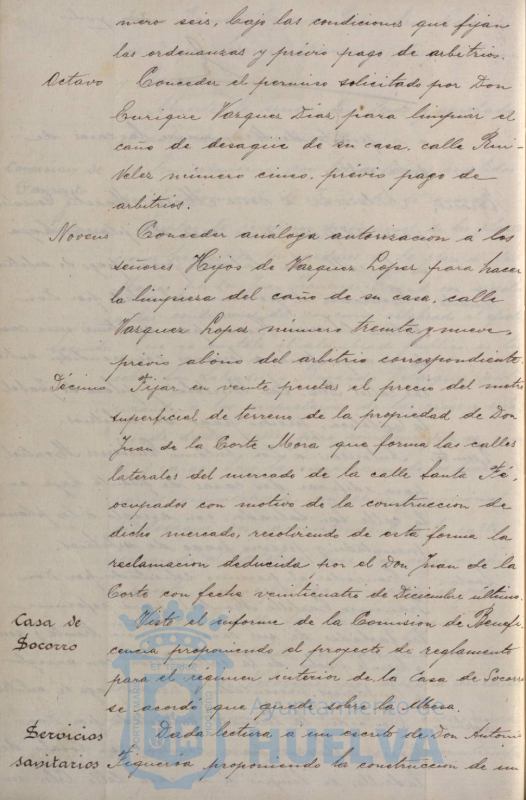 mero seis, bajo las condiciones que fijan
las ordenanzas y prévio pago de arbitrios.
Octavo Conceder el permiso solicitado por Don
Enrique Vazquez Diaz para limpiar el
caño de desagüe de su casa, calle Rui-
Velez número cinco, prévio pago de
arbitrios.
Noveno Conceder análoga autorizacion á los
señores Hijos de Vazquez Lopez para hacer
la limpieza del caño de su casa, calle
Vazquez Lopez número treinta y nueve,
prévio abono del arbitrio correspondiente.
Décimo Fijar en veinte pesetas el precio del metro
superficial de terreno de la propiedad de Don
Juan de la Corte Mora que forma las calles
laterales del mercado de la calle Santa Fé,
ocupados con motivo de la construccion de
dicho mercado, resolviendo de esta forma la
reclamacion deducida por el Don Juan de la
Corte con fecha veinticuatro de Diciembre último.
Casa de Socorro Visto el informe de la Comision de Benefi-
cencia proponiendo el proyecto de reglamento
para el régimen interior de la Casa de Socorro
se acordó que quede sobre la Mesa.
Servicios sanitarios Dada lectura a un escrito de Don Antonio
Figueroa proponiendo la construccion de un
Ayuntamiento de
HUELVA